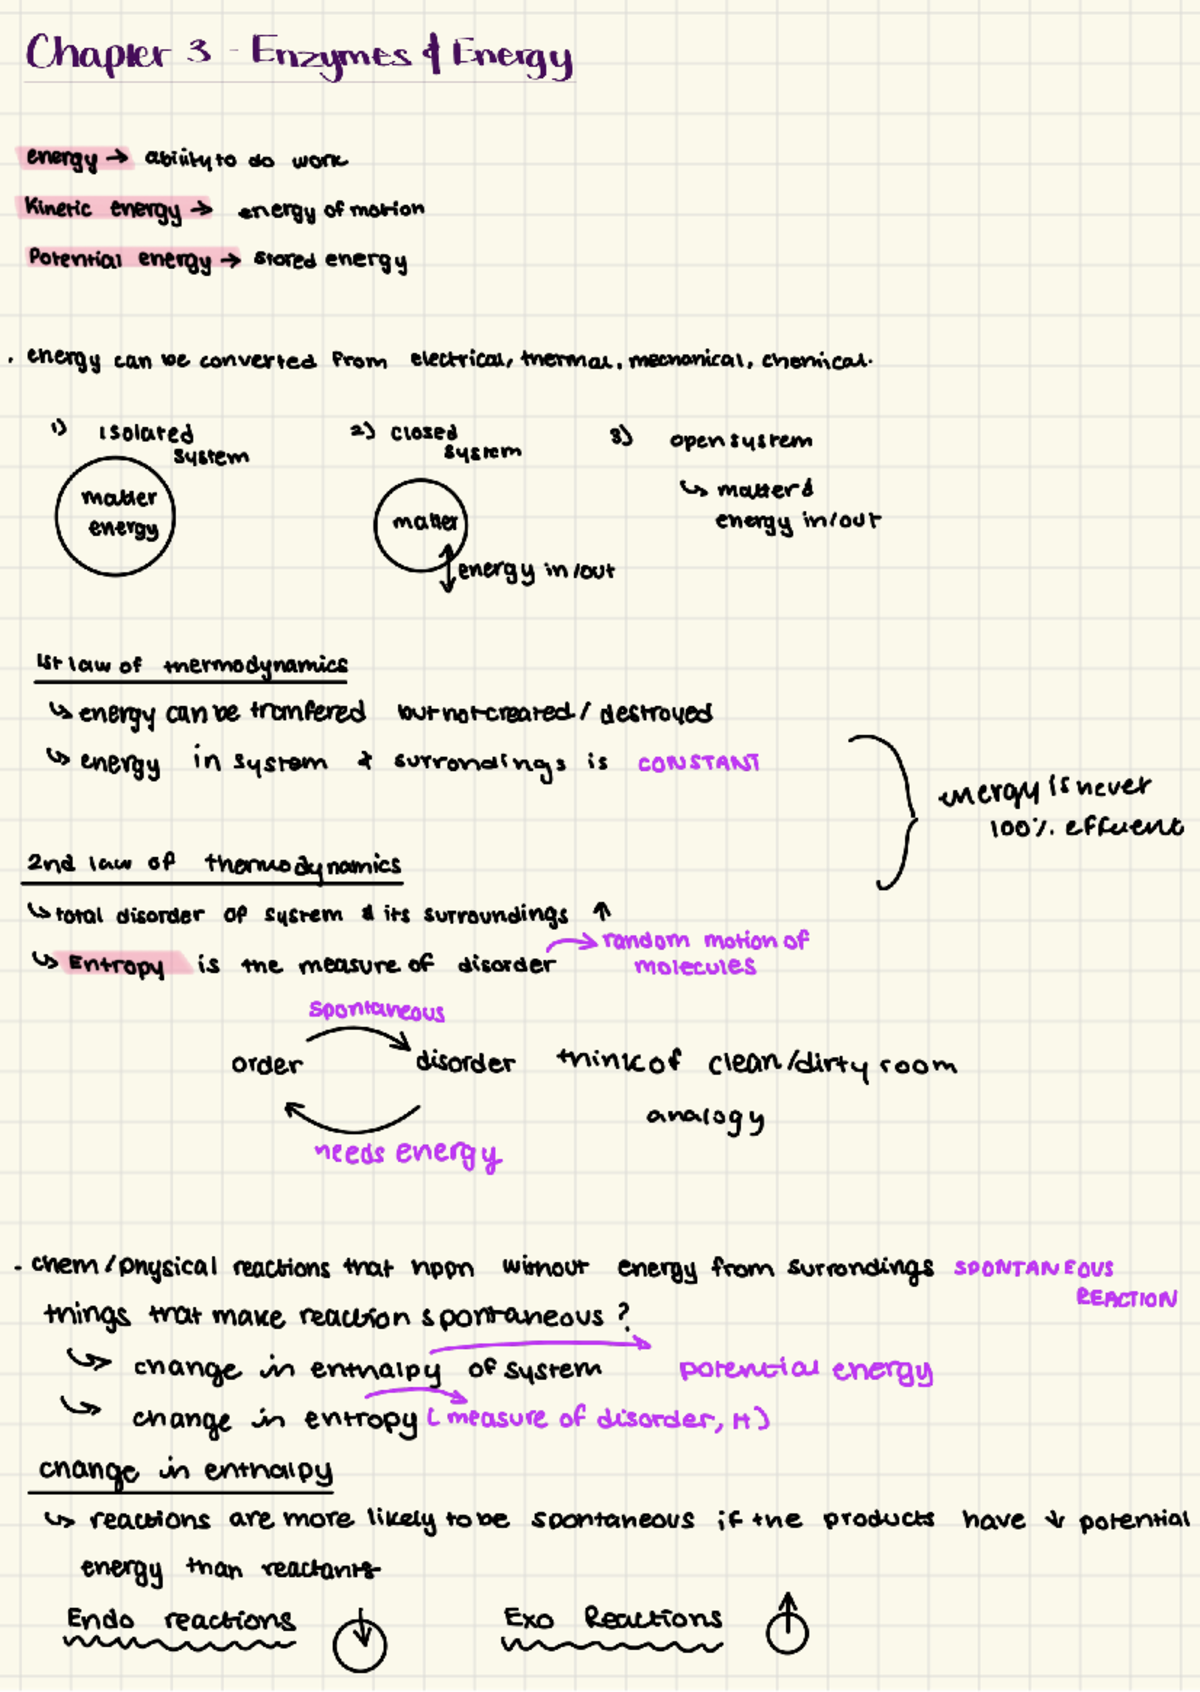 Chapter 3 - Enzymes & Energy
energy → ability to do work
Kinetic energy → energy of motion
Potential energy → stored energy
. energy can be converted from electrical, thermal, mechanical, chemical.
1) isolated system
matter
energy
2) closed system
matter
energy in/out
3) open system
↳ matter &
energy in/out
1st law of thermodynamics
↳ energy can be tranfered but not created / destroyed
↳ energy in system & surrondings is CONSTANT
energy is never
100% efficient
2nd law of thermodynamics
↳ total disorder of system & its surroundings ↑
↳ Entropy is the measure of disorder → random motion of
molecules
spontaneous
order disorder think of clean/dirty room
analogy
needs energy
. chem/physical reactions that hppn without energy from surrondings SPONTANEOUS
REACTION
things that make reaction spontaneous ?
↳ change in enthalpy of system potential energy
↳ change in entropy (measure of disorder, H)
change in enthalpy
↳ reactions are more likely to be spontaneous if the products have ↓ potential
energy than reactants
Endo reactions Exo Reactions